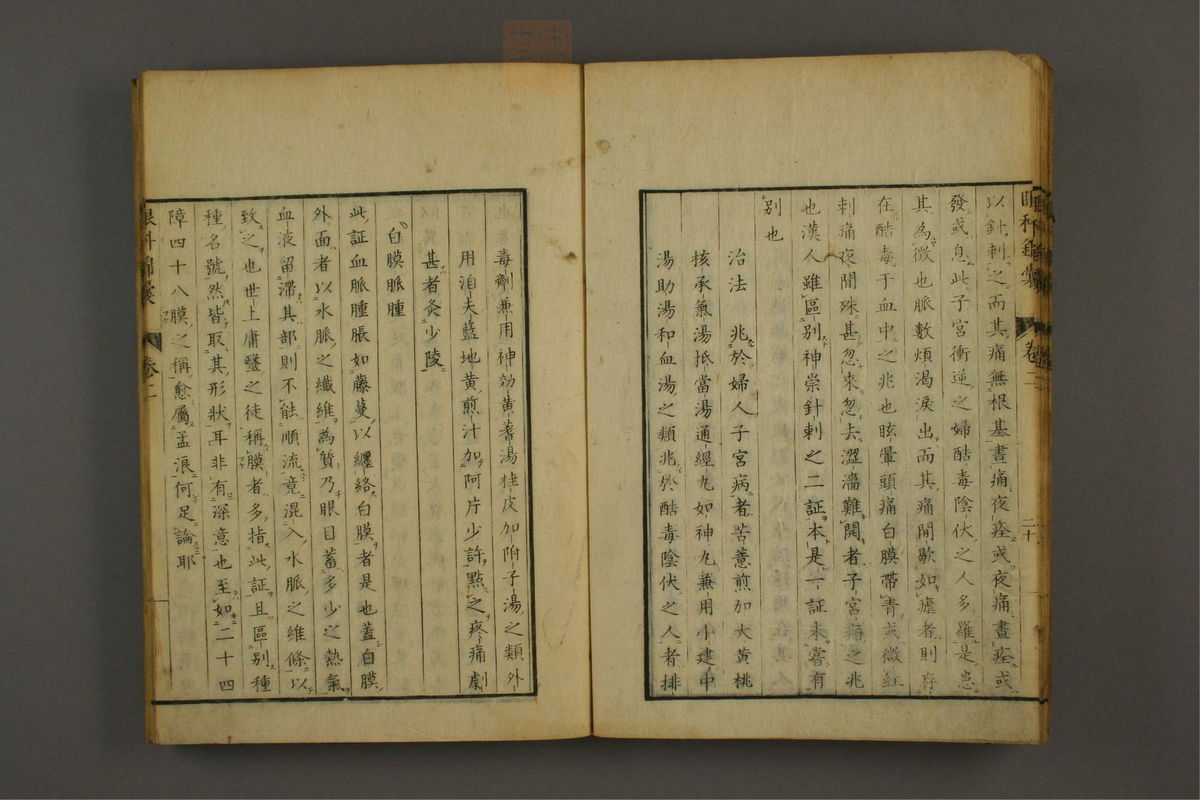 眼科錦囊 卷二 二十
以針刺之而其痛無根基晝痛夜痊或夜痛晝痊或
發或息此子宮衝逆之婦酷毒陰伏之人多罹是患
其為徵也脈數煩渴淚出而其痛間歇如瘧者則存
在酷毒于血中之兆也眩暈頭痛白膜帶青或微紅
刺痛夜間殊甚忽來忽去澀濇難開者子宮病之兆
也漢人雖區別神祟針刺之二証本是一証未嘗有
別也
治法 兆於婦人子宮病者苦薏煎加大黃桃
核承氣湯抵當湯通經丸如神丸兼用小建中
湯助湯和血湯之類兆於酷毒陰伏之人者排
毒劑兼用神効黃耆湯桂皮加附子湯之類外
用洎夫藍地黃煎汁加阿片少許點之疼痛劇
甚者灸少陵
白膜脈腫
此証血脈腫脹如藤蔓以纏絡白膜者是也蓋白膜
外面者以水脈之纖維為質乃眼目蓄多少之熱氣
血液留滯其部則不能順流竟混入水脈之維條以
致之也世上庸醫之徒稱膜者多指此証且區別種
種名號然皆取其形狀耳非有深意也至如二十四
障四十八膜之稱愈屬孟浪何足論耶
眼科錦囊 卷二